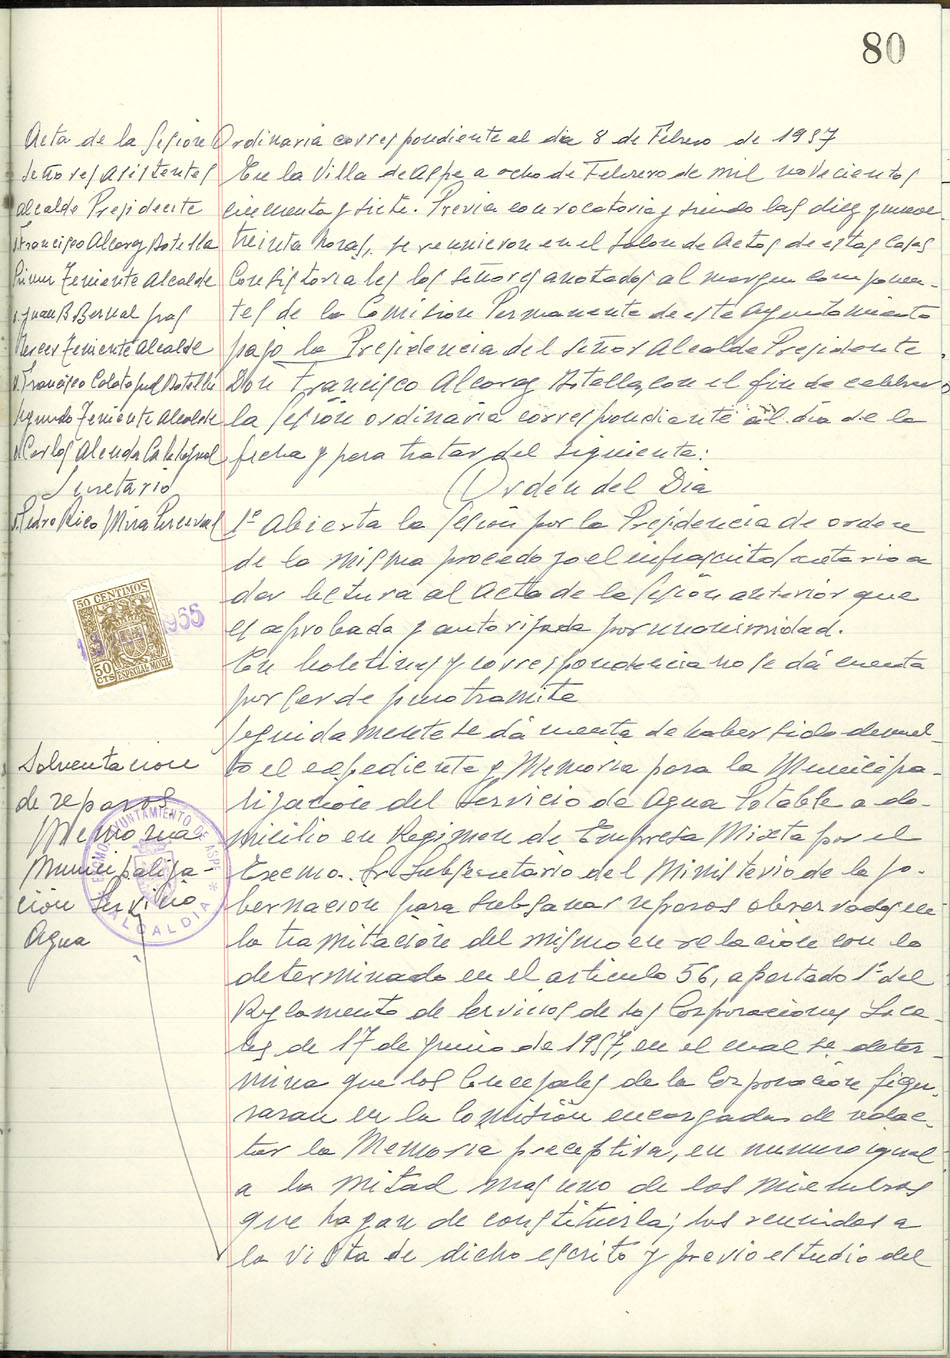 80
Acta de la Sesión Ordinaria correspondiente al dia 8 de Febrero de 1957
Señores Asistentes
Alcalde Presidente
D. Francisco Alcaraz Botella
Primer Teniente Alcalde
D. Juan B. Bernal
Tercer Teniente Alcalde
D. Francisco Botella
Segundo Teniente Alcalde
D. Carlos Alenda
Secretario
D. Pedro Rico Mira Perceval
En la Villa de Aspe a ocho de Febrero de mil novecientos
cincuenta y siete. Previa convocatoria y siendo las diez y nueve
treinta horas, se reunieron en el Salon de Actos de estas Casas
Consistoriales los señores anotados al margen componen-
tes de la Comisión Permanente de este Ayuntamiento
bajo la Presidencia del Señor Alcalde Presidente
Don Francisco Alcaraz Botella, con el fin de celebrar
la sesión ordinaria correspondiente al dia de la
fecha y para tratar del siguiente:
Orden del Dia
1º Abierta la sesión por la Presidencia de orden
de la misma procedo yo el infrascrito Secretario a
dar lectura al Acta de la sesión anterior que
es aprobada y autorizada por unanimidad.
En boletines y correspondencia no se dá cuenta
por ser de puro tramite
50 CENTIMOS
50
CTS
ESPECIAL MOVIL
1955
Solventacion
de reparos
Memoria
Municipaliza-
ción Servicio
Agua
EXCMO. AYUNTAMIENTO DE ASPE
ALCALDIA
Seguidamente se dá cuenta de haber sido devuel-
to el expediente y Memoria para la Municipa-
lización del Servicio de Agua Potable a do-
micilio en Regimen de Empresa Mixta por el
Excmo. Sr Subsecretario del Ministerio de la Go-
bernacion para subsanar reparos observados en
la tramitación del mismo en relacion con lo
determinado en el articulo 56, apartado 1º del
Reglamento de Servicios de las Corporaciones Loca-
les de 17 de Junio de 1957, en el cual se deter-
mina que los Concejales de la Corporación figu-
raran en la Comisión encargada de redac-
tar la Memoria preceptiva, en numero igual
a la mitad mas uno de los miembros
que hayan de constituirla; los reunidos a
la vista de dicho escrito y previo estudio del